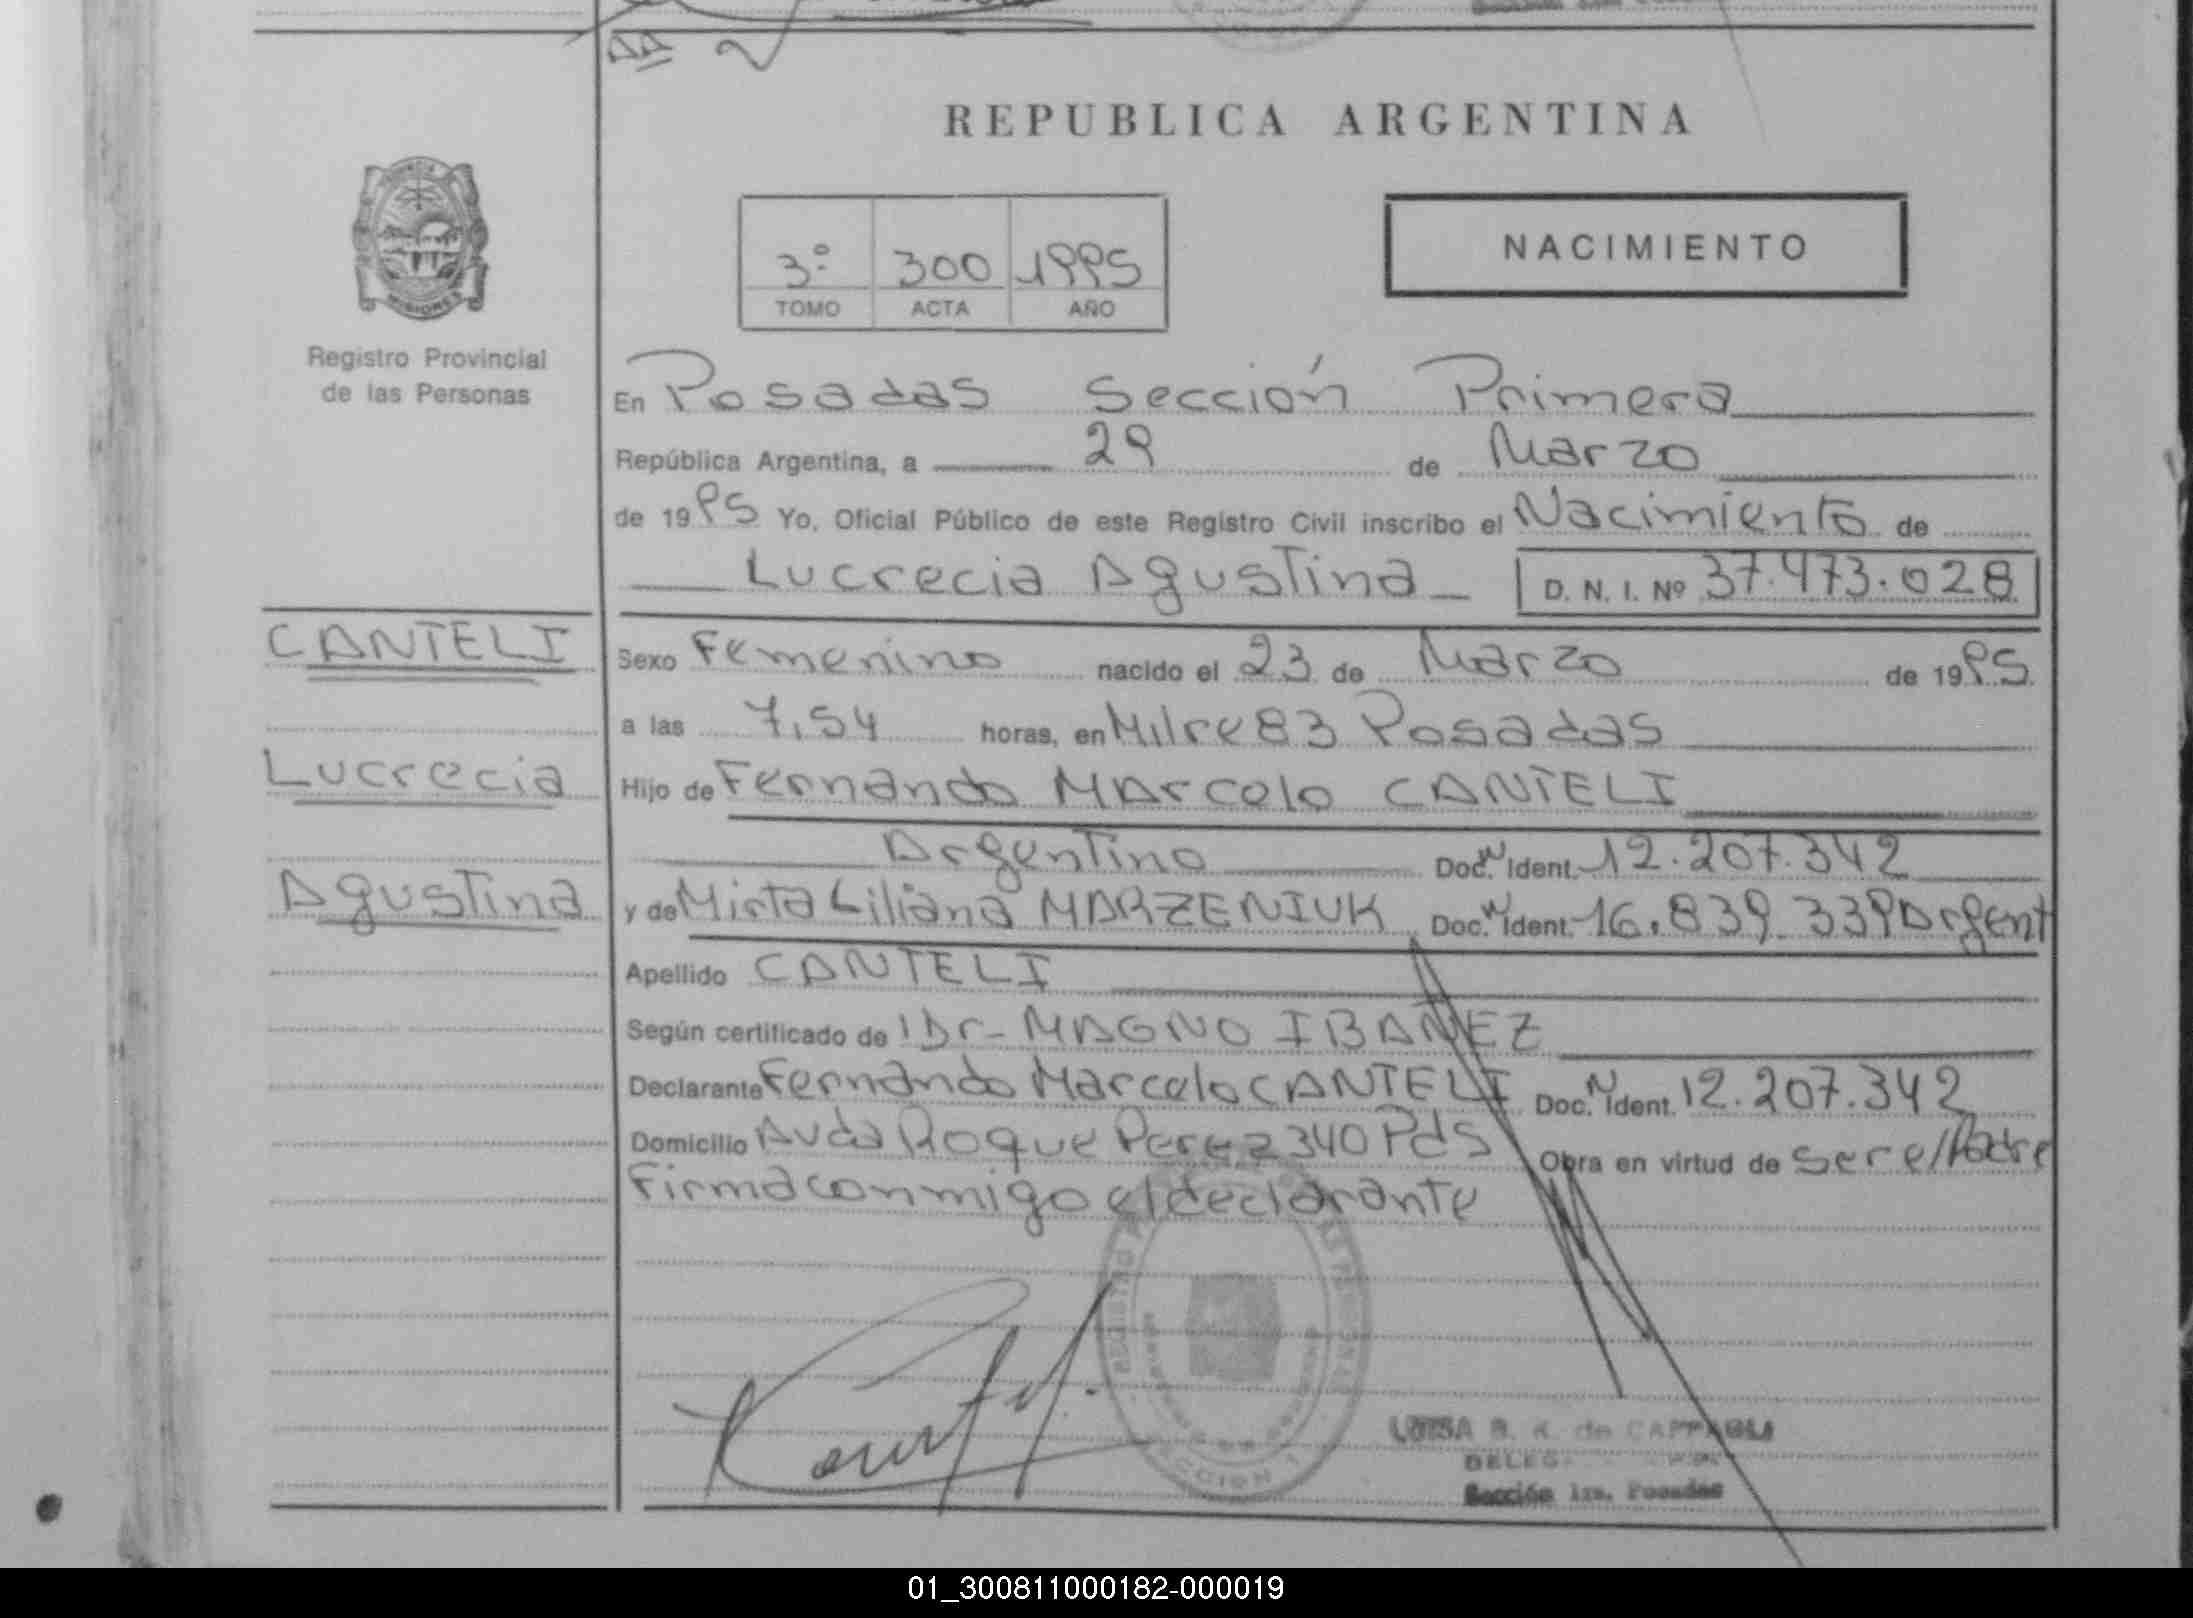 REPUBLICA ARGENTINA
MISIONES
Registro Provincial
de las Personas
3º 300 1995
TOMO ACTA AÑO
NACIMIENTO
En Posadas Sección Primera
República Argentina, a 29 de Marzo
de 1995 Yo, Oficial Público de este Registro Civil inscribo el Nacimiento de
Lucrecia Agustina D. N. I. Nº 37.473.028
CANTELI
Lucrecia
Agustina
Sexo Femenino nacido el 23 de Marzo de 1995
a las 7,54 horas, en Mitre 83 Posadas
Hijo de Fernando Marcelo CANTELI
Argentino Doc. N Ident. 12.207.342
y de Mirta Liliana MARZENIUK Doc. N Ident. 16.839.339 Argent
Apellido CANTELI
Según certificado de Dr- MAGNO IBAÑEZ
Declarante Fernando Marcelo CANTELI Doc. N Ident. 12.207.342
Domicilio Avda Roque Perez 340 Pds Obra en virtud de ser el Padre
Firma conmigo el declarante
LUISA B. K. de
Sección 1ra. Posadas
01_300811000182-000019